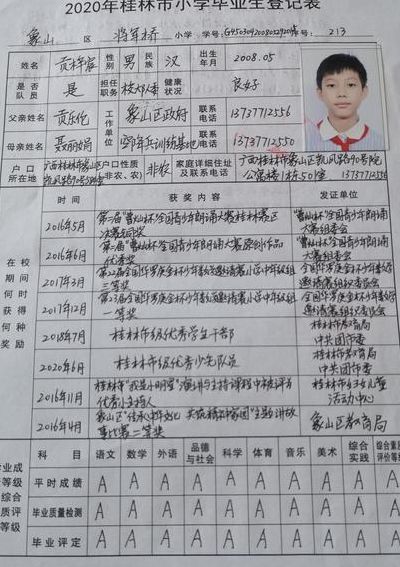 2020年桂林市小学毕业生登记表
象山 区 将军桥 小学 · 学号: 号: 213
姓名 性别 男 民族 汉 出生年月 2008.05
是否队员 是 担任职务 健康状况 良好
父亲姓名 工作单位 象山区政府 联系电话 13737712556
母亲姓名 训练基地 联系电话 13737712550
户口所在地 户口性质(非农、农) 非农 家庭详细住址及联系电话 广西桂林市象山区凯风路90号院
公寓楼1栋501室 13737712556
在校期间何时获得何种奖励
时间 获奖内容 发证单位
2016年5月 "曹灿杯"全国青少年朗诵大赛桂林赛区 "曹灿杯"全国青少年朗诵大赛组委会
2016年6月 "曹灿杯"全国青少年朗诵大赛原创作品优秀奖 "曹灿杯"全国青少年朗诵大赛组委会
2017年3月 第22届全国华罗庚金杯少年数学邀请赛小学中年级组二等奖 全国华罗庚金杯少年数学邀请赛组织委员会
2017年12月 第23届全国华罗庚金杯少年数学邀请赛小学中年级组一等奖 全国华罗庚金杯少年数学邀请赛组织委员会
2018年7月 桂林市级优秀学生干部 桂林市教育局 中共团市委
2020年6月 桂林市级优秀少先队员 桂林市教育局 中共团市委
2016年11月 桂林市"我是小明星"演讲与主持课程中被评为优秀小主持人 桂林市妇女儿童活动中心
2016年4月 象山区"传承中华文化 共筑精神家园"主题讲故事比赛二等奖 象山区教育局
科目 语文 数学 外语 品德与社会 科学 体育 音乐 美术 综合实践 综合素质评价等级
平时成绩 A A A A A A A A A A
毕业质量检测 A A A A A A A A A A
毕业评定 A A A A A A A A A A